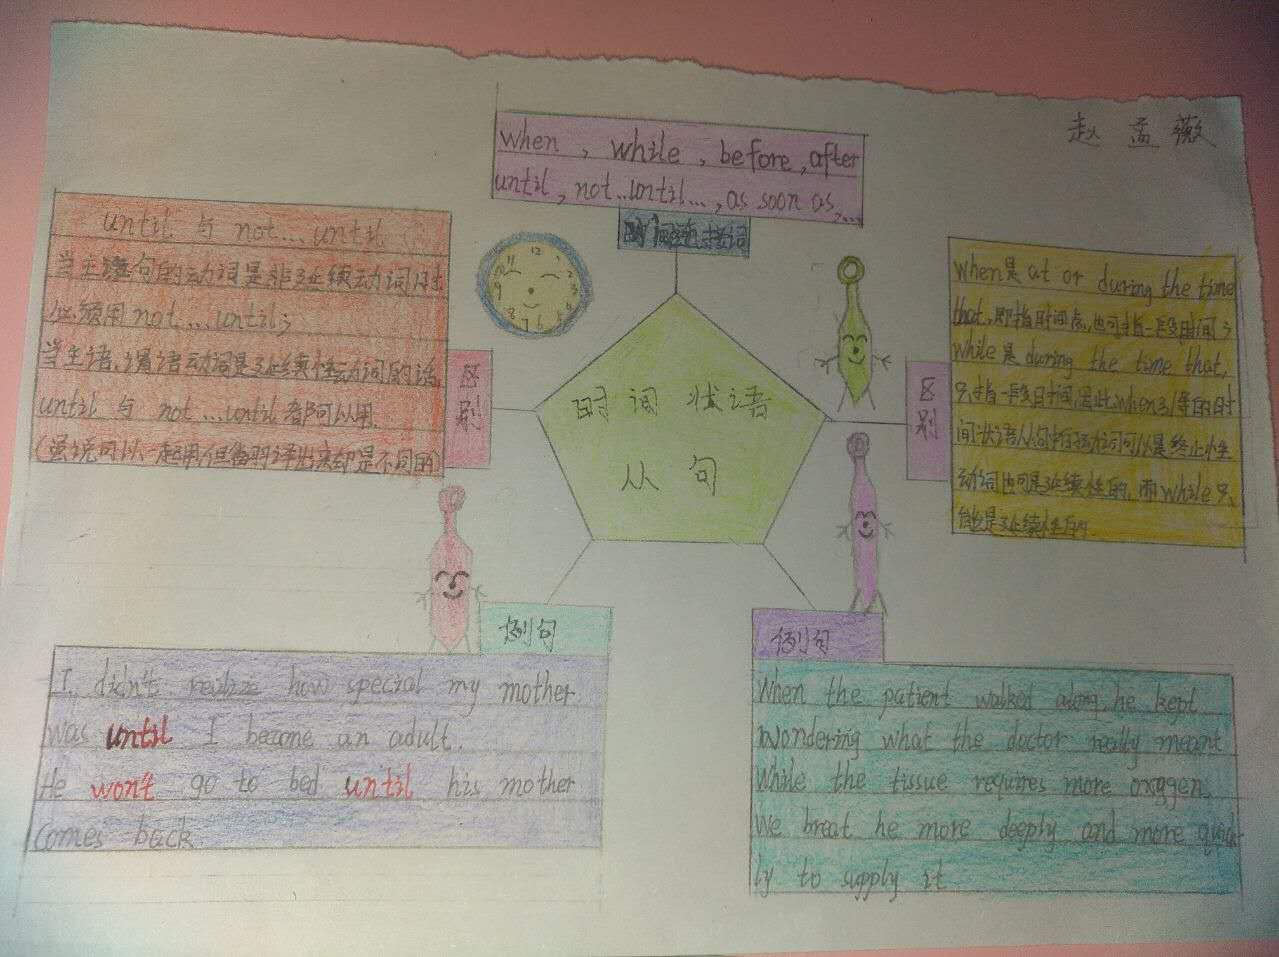 赵孟薇
when, while, before, after
until, not...until..., as soon as, ...
时间连接词
until 与 not...until
当主谓句的动词是非延续动词时
必须用 not...until;
当主语,谓语动词是延续性动词的话,
until 与 not...until都可以用.
(虽说可以一起用,但翻译出来却是不同的)
区别
12
时间状语
从句
区别
when是 at or during the time
that, 即指时间点,也可指一段时间;
while 是 during the time that,
只指一段时间,因此,when引导的时
间状语从句中的动词可以是终止性
动词也可是延续性的,而while只
能是延续性的.
例句
I didn't realize how special my mother
was until I become an adult.
He won't go to bed until his mother
comes back.
例句
When the patient walked along, he kept
wondering what the doctor really meant
While the tissue requires more oxggen.
We breat he more deeply and more quick-
ly to supply it